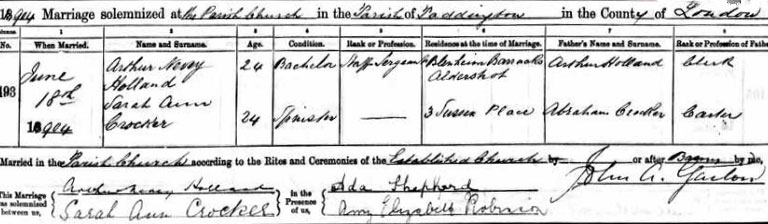 1904 Marriage solemnized at the Parish Church in the Parish of Paddington in the County of London
1 2 3 4 5 6 7 8
No. When Married. Name and Surname. Age. Condition. Rank or Profession. Residence at the time of Marriage. Father's Name and Surname. Rank or Profession of Father
193 June 18th 1904
Arthur Novey Holland 24 Bachelor Staff Sergeant Blenheim Barracks Aldershot Arthur Holland Clerk
Sarah Ann Crocker 24 Spinster — 3 Sussex Place Abraham Crocker Carter
Married in the Parish Church according to the Rites and Ceremonies of the Established Church by or after Banns by me,
This Marriage was solemnized between us, Holland Sarah Ann Crocker
in the Presence of us, Ada Shephard Amy Elizabeth Robinson
John A.